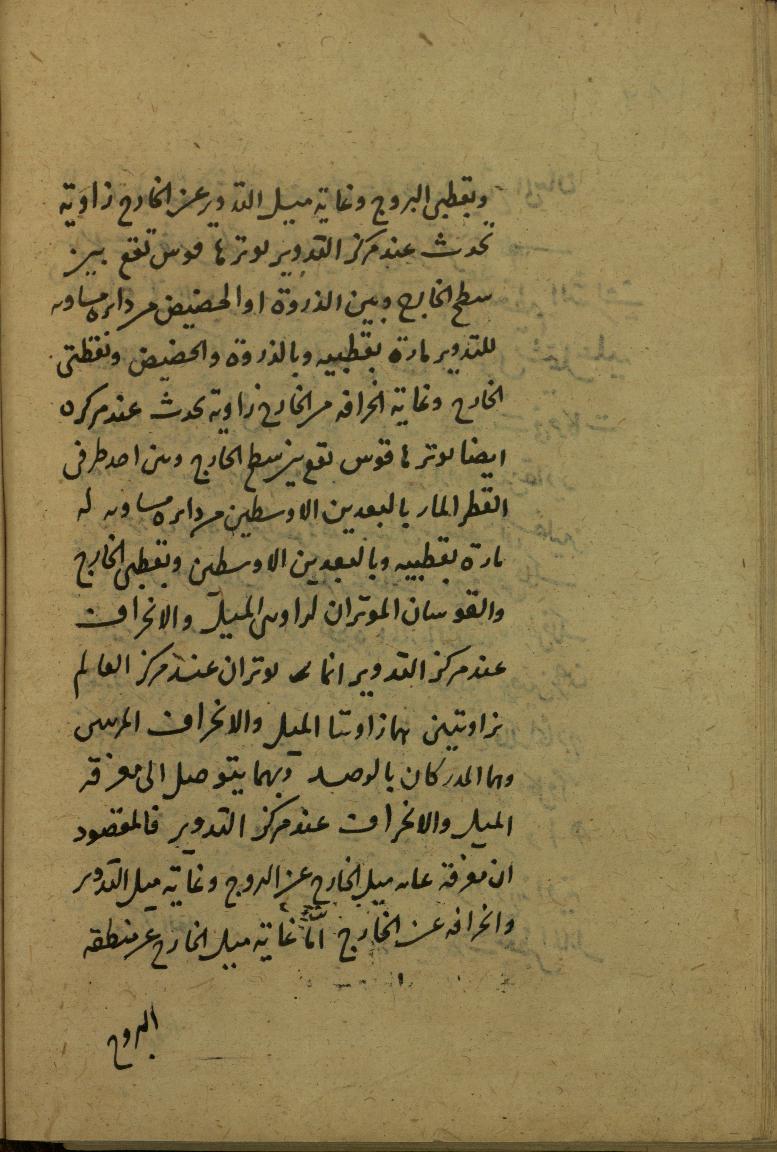 وبقطبى البروج وغاية ميل التدوير عن الخارج زاوية
تحدث عند مركز التدوير يوترها قوس تقع بين
سطح الخارج وبين الذروة او الحضيض من دائرة مساوية
للتدوير مارة بقطبيه وبالذروة والحضيض ونقطتى
الخارج وغاية انحرافه من الخارج زاوية تحدث عند مركزه
ايضا يوترها قوس تقع بين سطح الخارج وبين احد طرفى
القطر المار بالبعدين الاوسطين من دائرة مساوية له
مارة بقطبيه وبالبعدين الاوسطين وبقطبى الخارج
والقوسان الموتران لزاويتى الميل والانحراف
عند مركز التدوير انما يوتران عند مركز العالم
بزاويتين هما زاويتا الميل والانحراف المرئيتين
وهما المدركان بالرصد وبهما يتوصل الى معرفة
الميل والانحراف عند مركز التدوير فالمقصود
ان معرفة غاية ميل الخارج عن البروج وغاية ميل التدوير
وانحرافه عن الخارج امّا غاية ميل الخارج عن منطقة
البروج